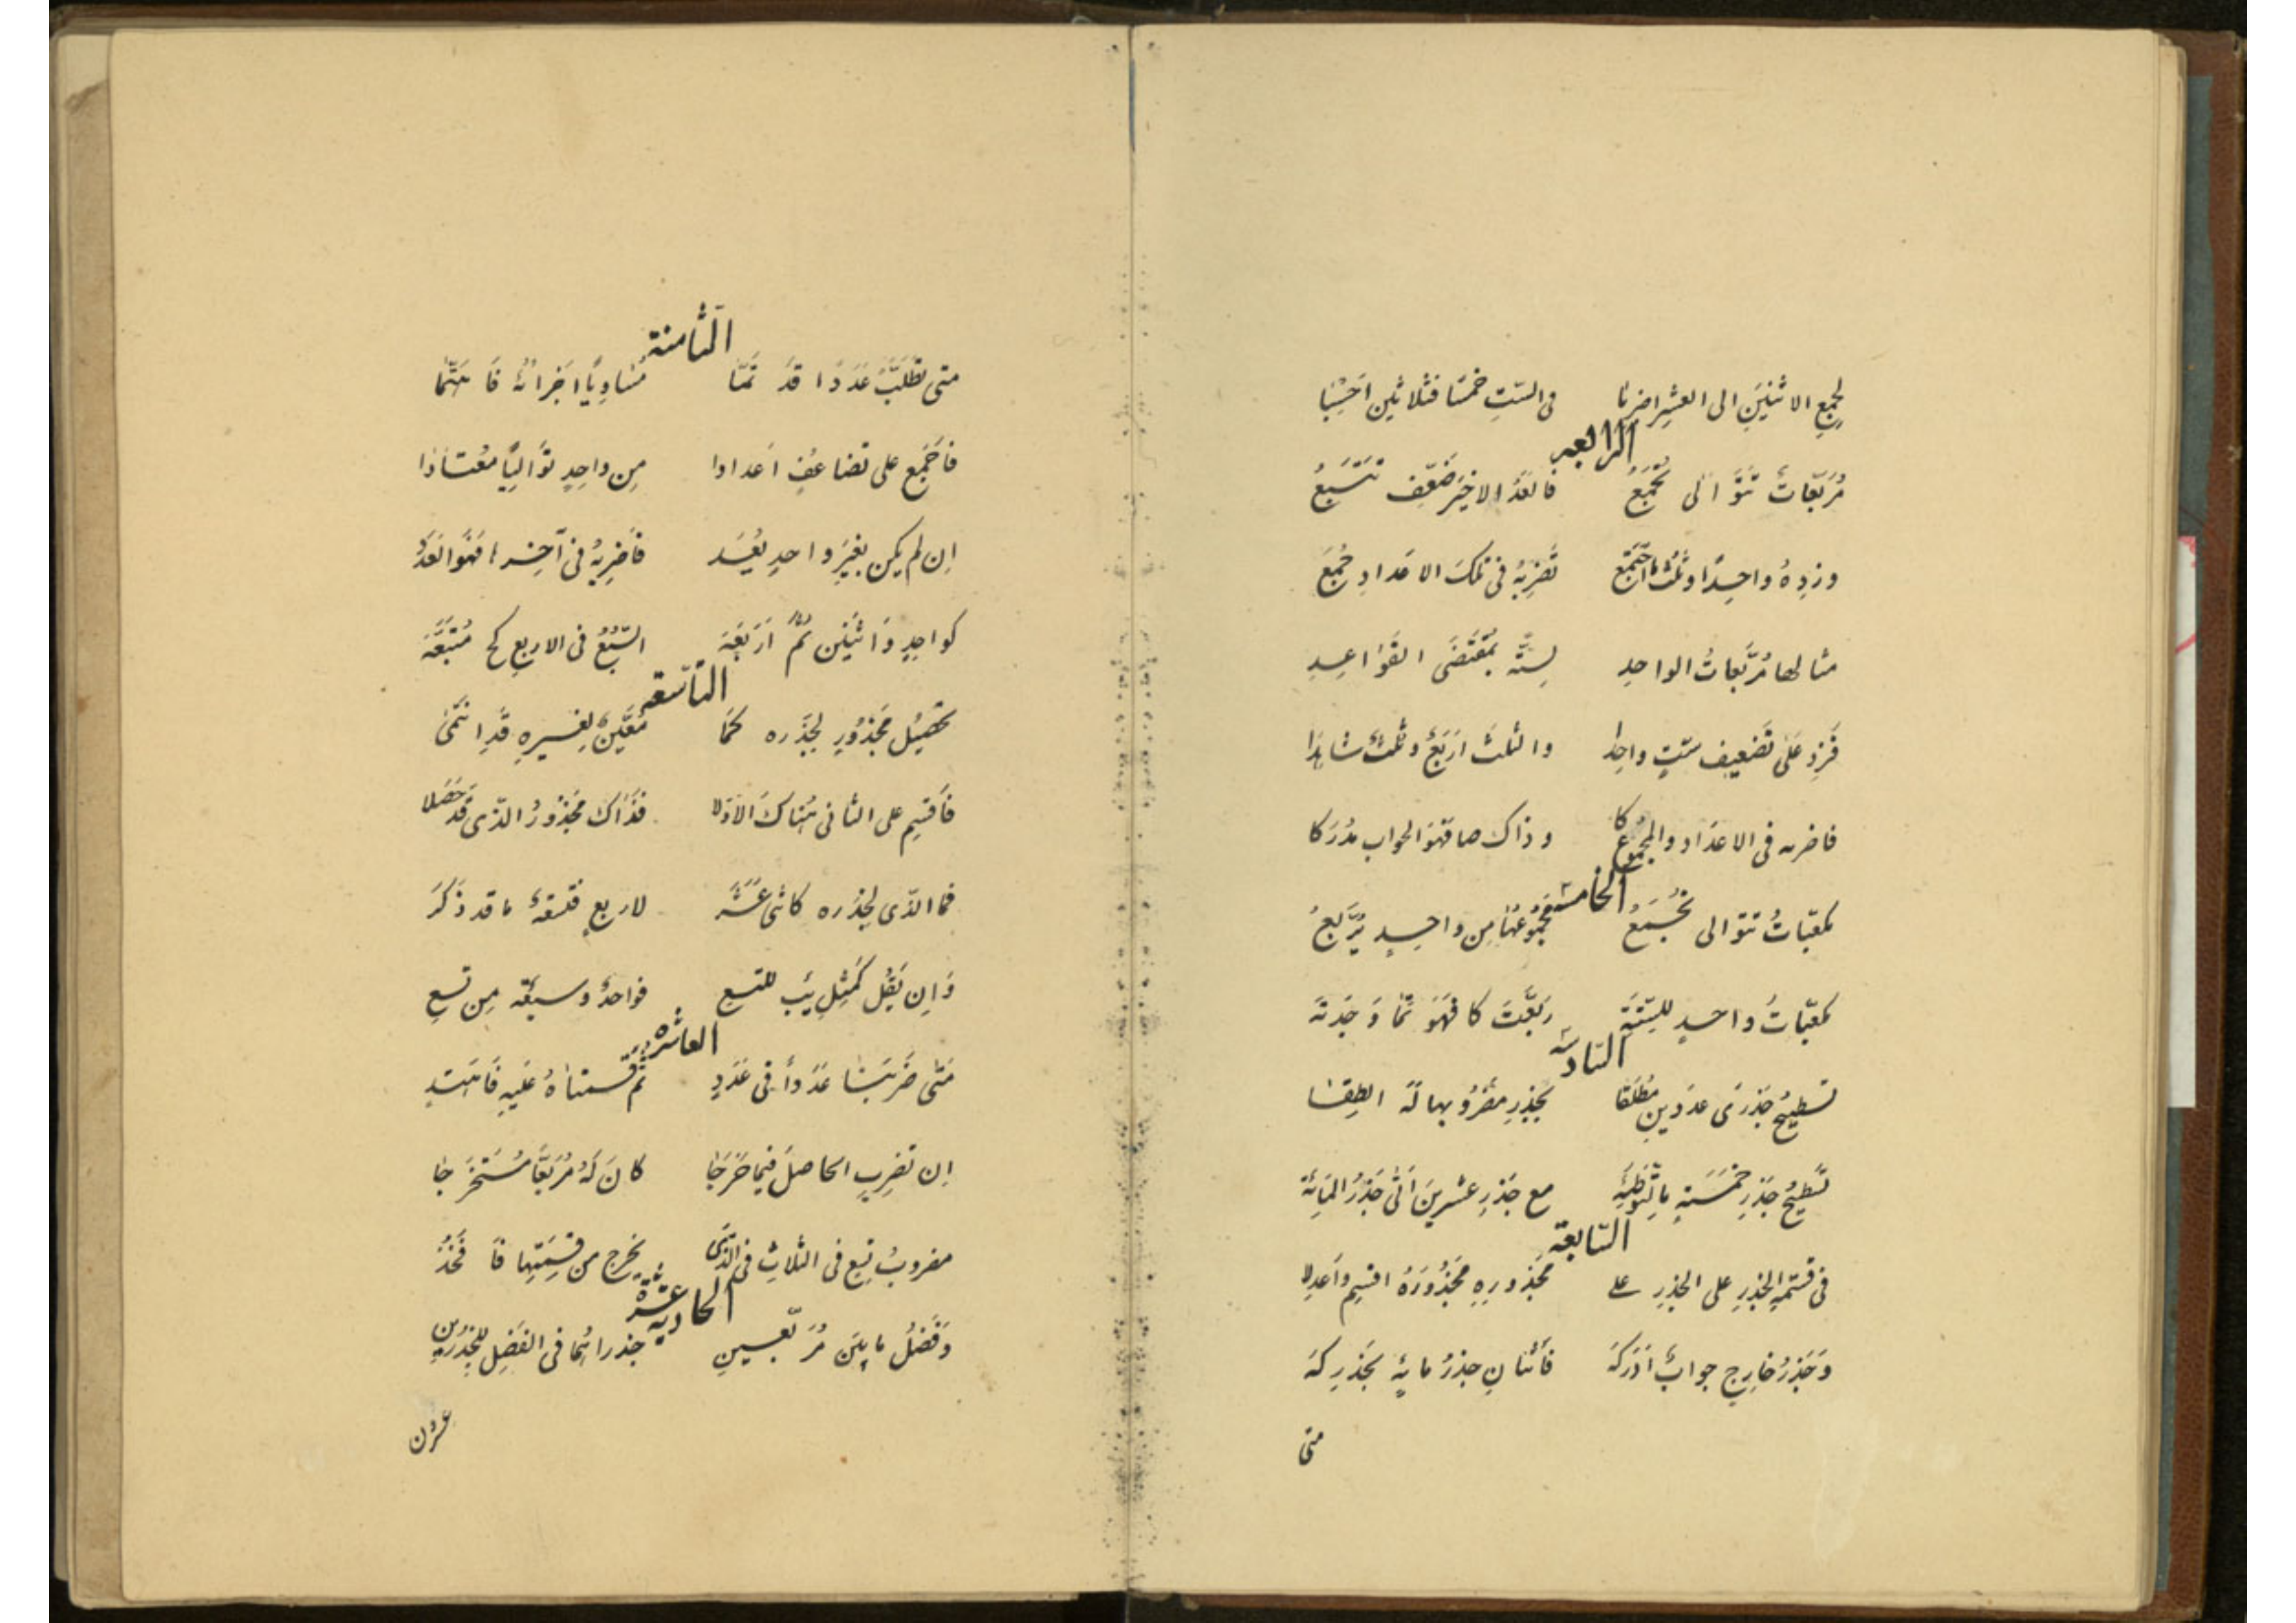 لجمع الاثنين الى العشر اضربا في الست خمسا فثلاثين احسبا
الرابعة
مُرَبّعات تتوالى تُجمَعُ فالعدُّ الاخير ضَعّف تتسبعُ
وزده واحدًا وثلث ما اجتمع تضربه في تلك الاعداد جُمع
مثالها مُربّعاتُ الواحد لستة بمقتضى القواعد
فَزِد على تضعيف ستٍ واحدا والثلث اربع وثلث شاهدا
فاضربه في الاعداد والمجموع كا وذاك صا فهو الجواب مدركا
الخامسة
مكعّباتُ تتوالى تُجمَعُ فمجموعها من واحدٍ يُربّعُ
مكعّباتُ واحدٍ للستة ربّعتَ كا فهو تما وجدته
السّادسة
تسطيح جذرى عددين مطلقا بجذر مضروبهما له انطبقا
تسطيح جذر خمسة بالتوطئه مع جذر عشرين اتى جذر المائة
السّابعة
في قسمة الجذر على الجذر على مجذوره مجذورَه اقسم واعدلا
وجذرُ خارجٍ جوابٌ ادركه فاثنان جذرُ مايةٍ بجذر كه
متى
الثّامنة
متى تطلّب عددًا قد تمّا مساويًا اجزائه فاهتمّا
فاجمع على تضاعف اعدادا من واحدٍ تواليًا معتادا
ان لم يكن بغير واحدٍ يُعَد فاضربه في آخرها فهو العدد
كواحدٍ واثنين ثمّ اربعة السّبع في الاربع كح متبعَه
التّاسعة
تحصيل مجذورٍ لجذره كما معيّنٌ لغيره قد انتمى
فاقسم على الثاني هناك الاوّلا فذاك مجذورُ الذى قد حصلا
فما الذى لجذره كاثنى عشر لاربعٍ فتسعةٌ ما قد ذكر
وان يقل كمثل يب للتسع فواحدٌ وسبعةٌ من تسع
العاشرة
متى ضربنا عددًا في عددٍ ثم قسمناه عليه فاهتدِ
ان تضرب الحاصل فيما خرجا كان له مُربّعًا مستخرجا
مضروبُ تسع في الثلاث في الذى يخرج من قسمتها فافخذ
الحادية عشرة
وفضلُ ما بين مُربّعين جذراهما في الفضل للجذرين
عشرون